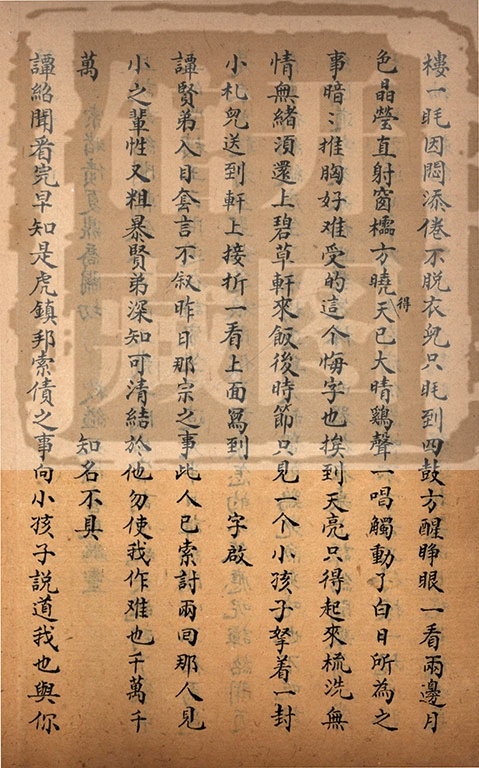 樓一眊因悶添倦不脫衣兒只眊到四鼓方醒睁眼一看兩邊月
色晶瑩直射窗櫺方曉得天已大晴鷄聲一唱觸動了白日所為之
事暗:推胸好难受的這个悔字也挨到天亮只得起來梳洗無
情無緒須還上碧草軒來飯後時節只見一个小孩子拏着一封
小札兒送到軒上接拆一看上面寫到
字啟
譚賢弟入目套言不叙昨日那宗之事此人已索討兩回那人見
小之輩性又粗暴賢弟深知可清結於他勿使我作难也千萬千
萬
知名不具
譚紹聞看完早知是虎鎮邦索債之事向小孩子説道我也與你